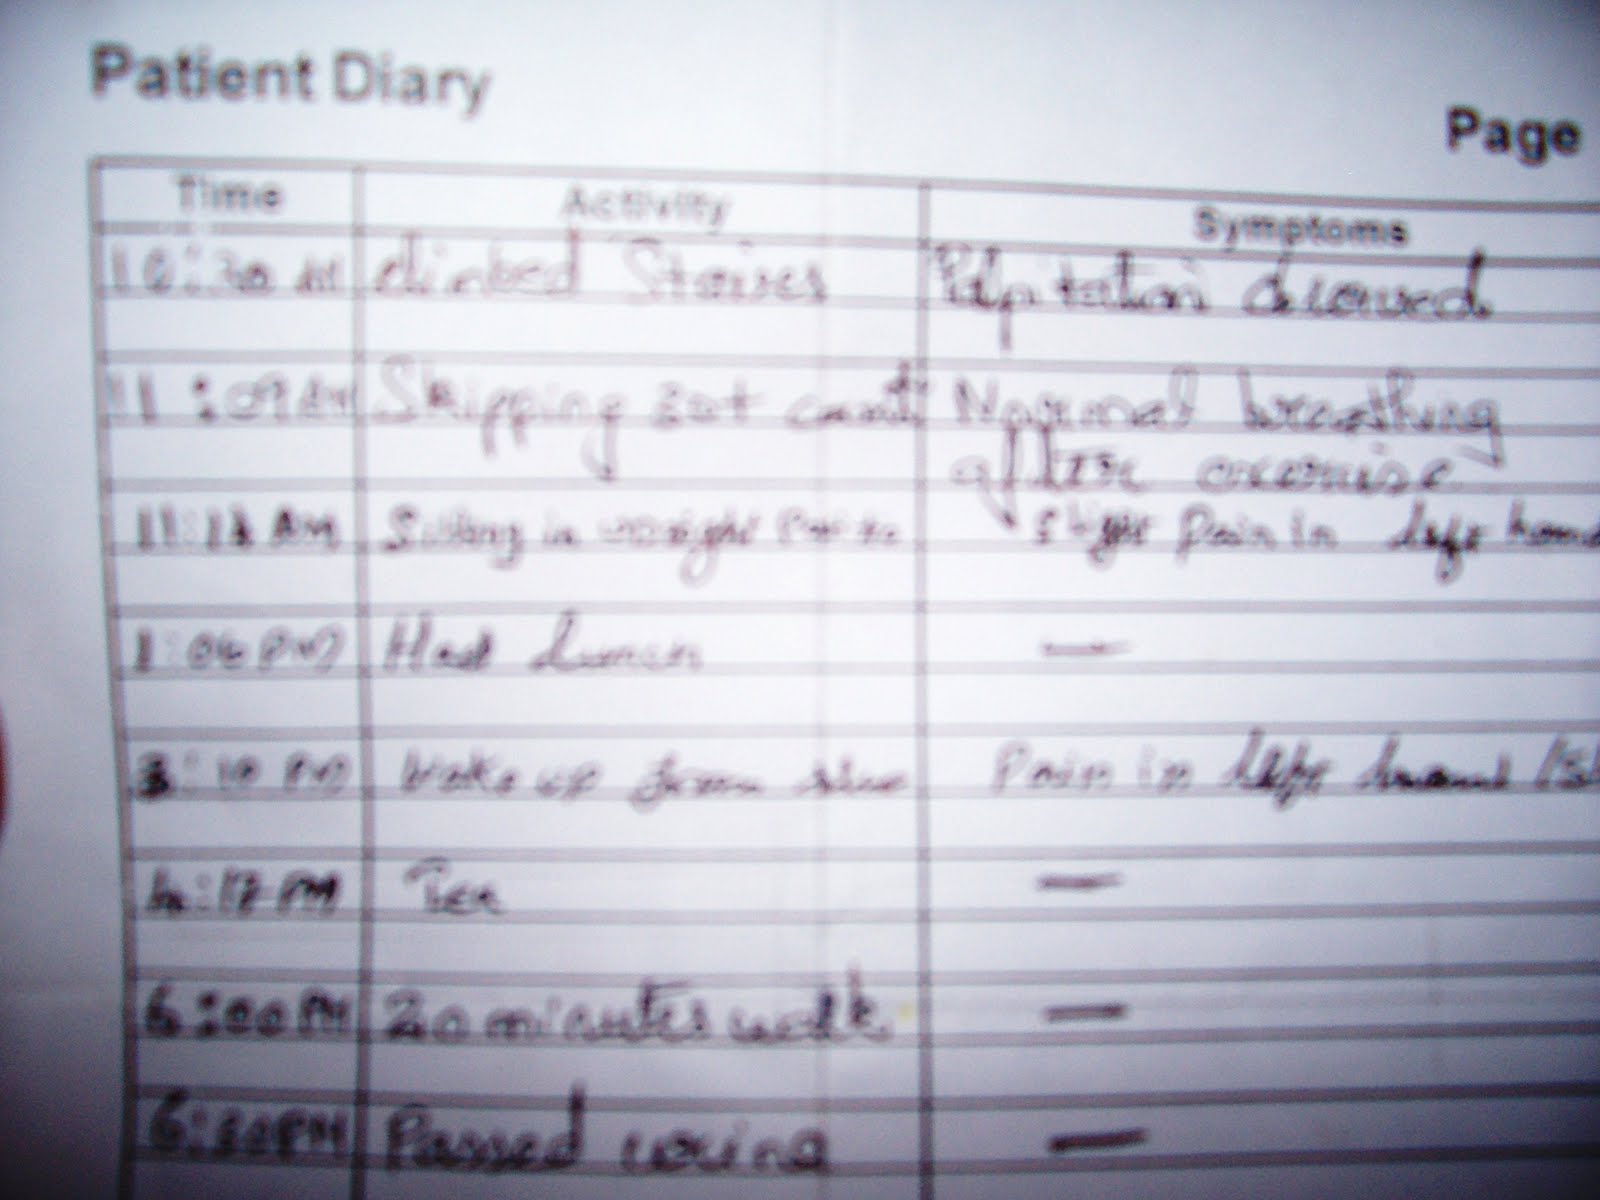 Patient Diary
Page
Time Activity Symptoms
10:30 AM climbed Staires Palpitation occured
11:09 AM Skipping Normal breathing
after excercise
11:12 AM Sitting in Pain in left hand
1:06 PM Had Lunch —
3:10 PM Woke up from Pain in left hand
4:17 PM Tea —
6:00 PM 20 minutes walk —
6:20 PM Passed urine —